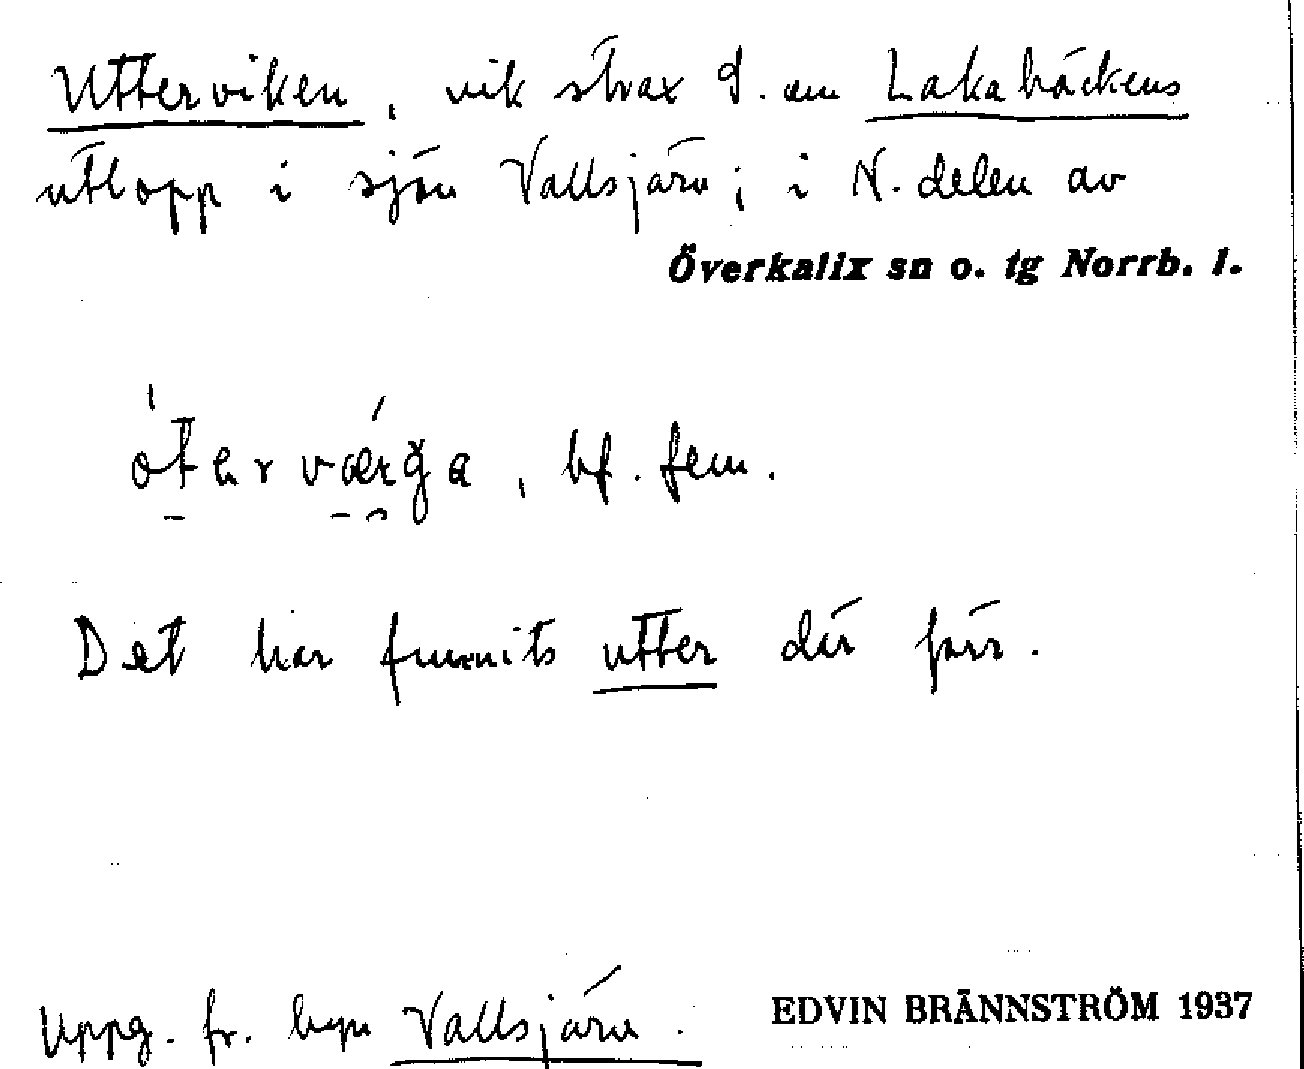 Utterviken, vik strax S. om Lakabäckens
utlopp i sjön Vallsjärv; i N. delen av
Överkalix sn o. tg Norrb. l.
bf. fem.
Det har funnits utter där förr.
Uppg. fr. byn Vallsjärv.
EDVIN BRÄNNSTRÖM 1937